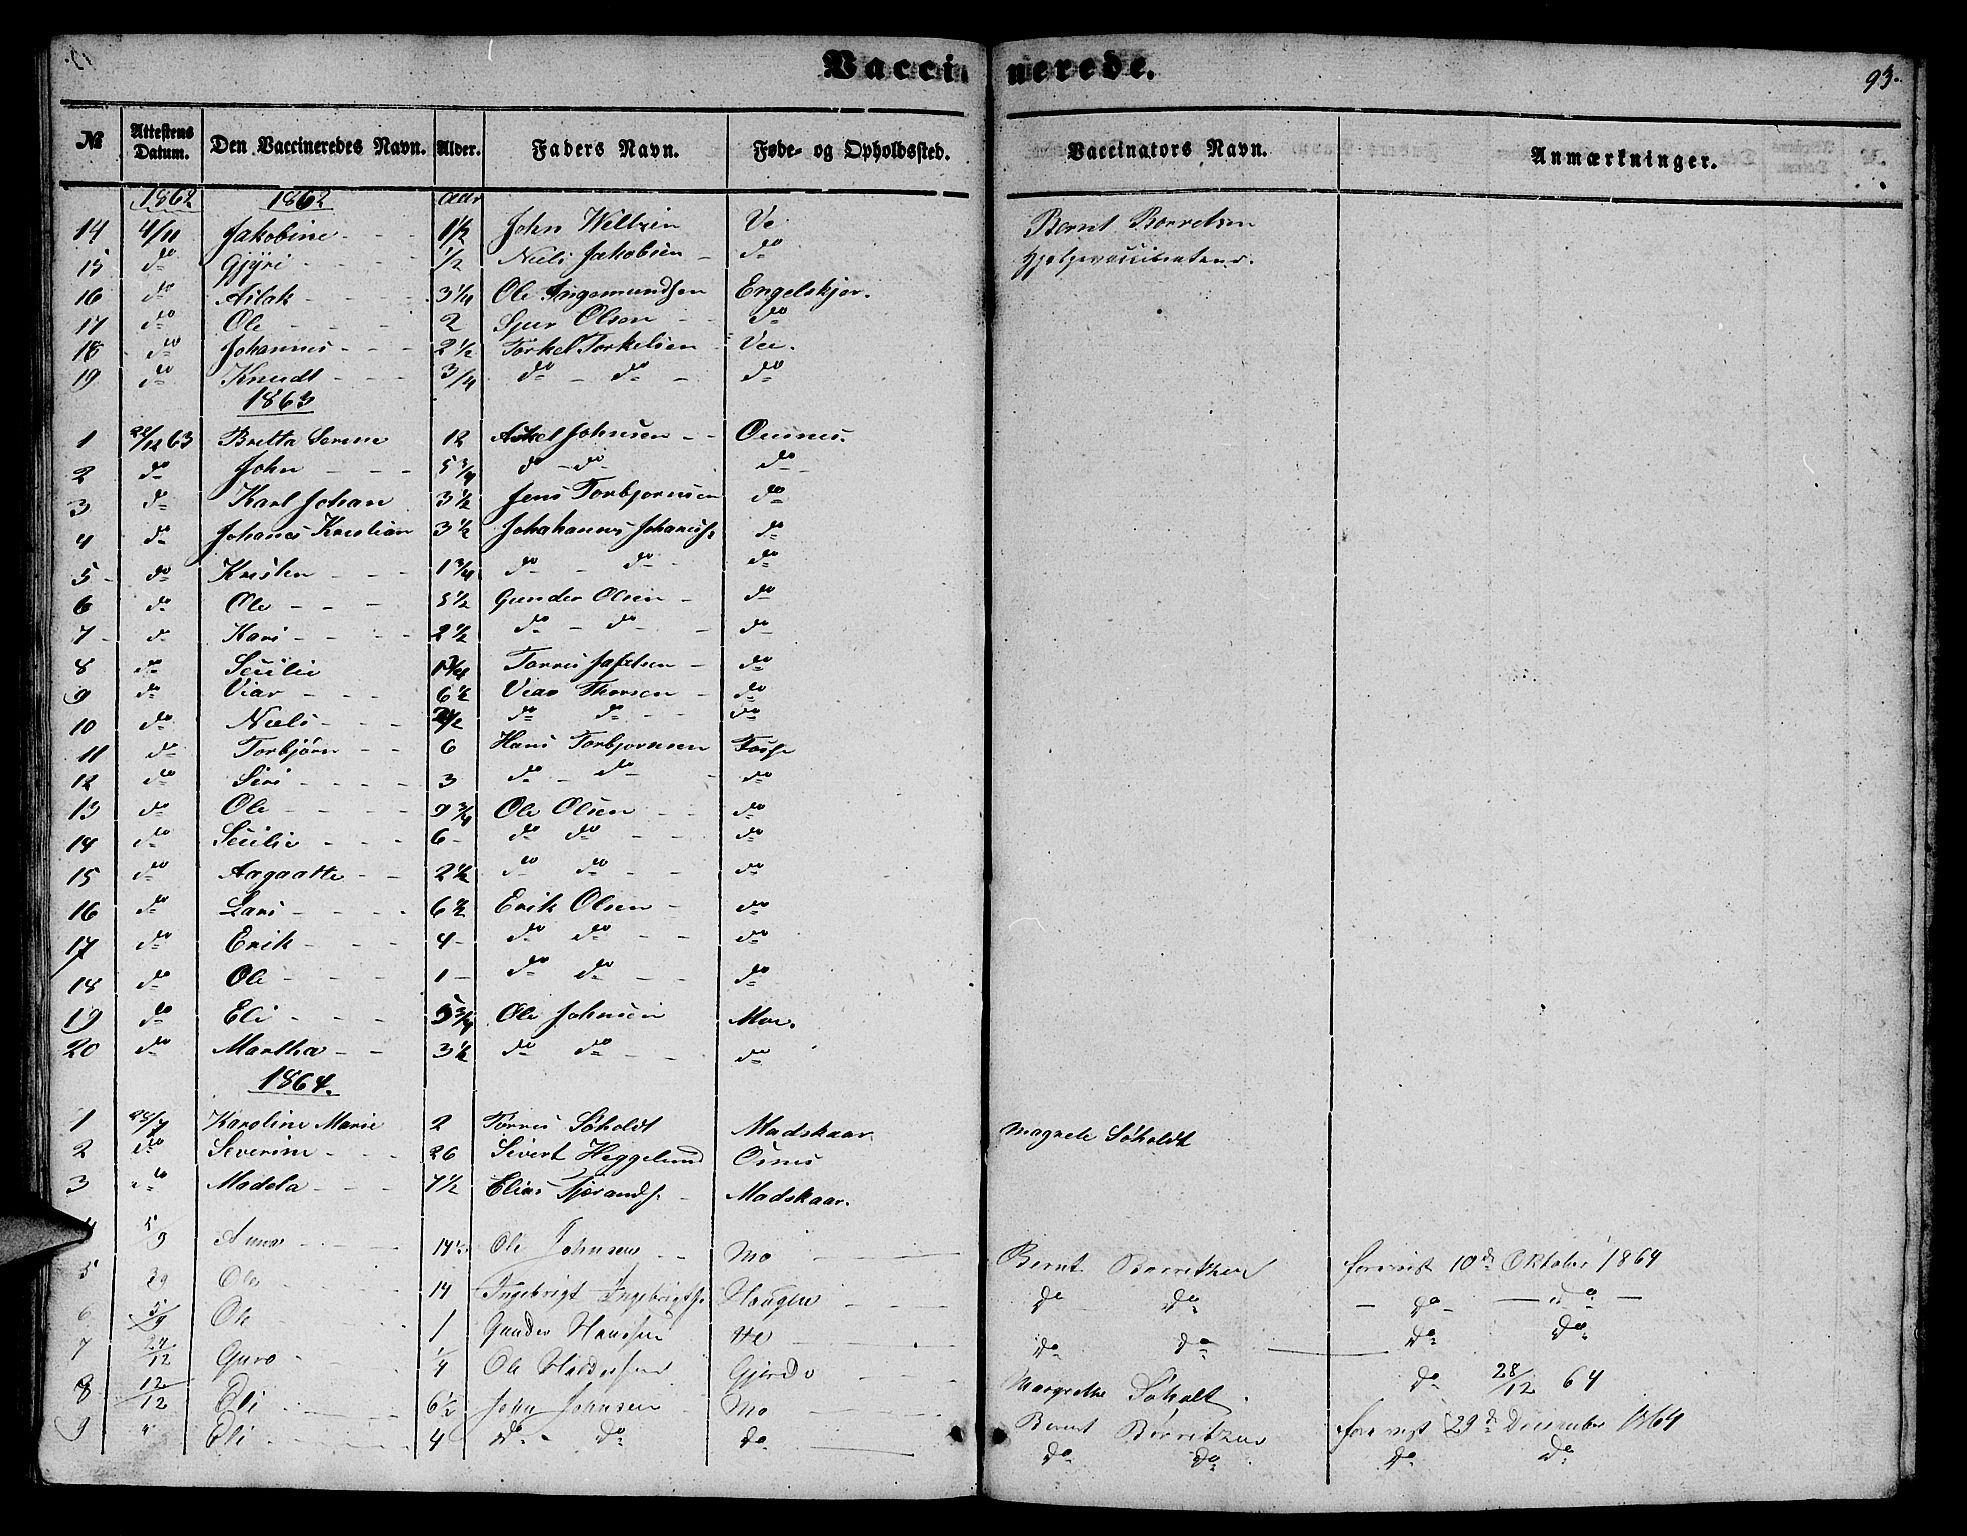 Vaccinerede.
93.
No Attestens Datum. Den Vaccineredes Navn. Alder. Faders Navn. Føde- og Opholdssted. Vaccinators Navn. Anmærkninger.
1862 1862 aar
14 4/11 Jakobine - - - 1½ John Weltzin Ve Bernt Borretsen
15 do Gjyri - - - - ½ Niels Jakobsen - do
16 do Aslak - - - - 3¼ Ole Ingemundsen Engelskjør.
17 do Ole - - - - 2 Sjur Olson - - do
18 do Johannes - - - 2½ Torkel Torkelsen Vee.
19 do Knudt - - - 3/4 do - do - do
1863
1 22/12 63 Britta Serine 12 Askel Johnsen - - Oennes.
2 do John - - - 5¾ do - do do
3 do Karl Johan 3½ Jens Torbjornsen do
4 do Johanes Kristian 3½ Johahannes Johanesf. do
5 - do Kristen - - - 1¾ do - do - do
6 do Ole - - - 5½ Gunder Olsen - do
7 - do Kari - - - - 2½ do - do - - do
8 do Sesilie 1¾ Torres - do
9 do Viar - - - 6½ Viar Thorsen - do
10 do Niels - - - 2½ do do - - do
11 do Torbjörn - - 6 Hans Torbjornsen Fosse
12 do Siri - - - - 3 do - do - do
13 do Ole - - - - 9¾ Ole Olsen - - do
14 do Sesilie - - - 6 - do do - - do
15 do Aagaatte - - 2½ do do - - do
16 do Lars - - - - 6½ Erik Olsen - do
17 do Erik - - - 4 - do do - - do
18 do Ole - - - - 1 - do do - - do
19 do Eli - - - - 5¾ Ole Johnsen Moe.
20 do Martha - - 3½ do do - - do
1864.
1 28/7 Karoline Marie 2 Torres Søholdt Madskaar Magrete Søholdt
2 do Severine - - - 26 Sivert Heggelund Osnes
3 do Madela - - - 7½ Elias Sjerandsf. - Madskaar.
4 5/9 Anna 14½ Ole Johnsen - - Mo Bernt Borretzen forevist 10de Oktober 1864
5 Ole 14 Ingebrigt Ingebrigtsf. Haugen - - - do do - do - do -
6 5/9 Ole 1 Gunder Hansen Ve do do do do
7 24/12 Guro ¼ Ole Gjerde - - - Margrethe Søholt do 28/12 64
8 12/12 Eli 6½ John Johnsen - Mo Bernt Borretzen forevist 29de December 1864
9 " Eli 4 do - do do do do do do